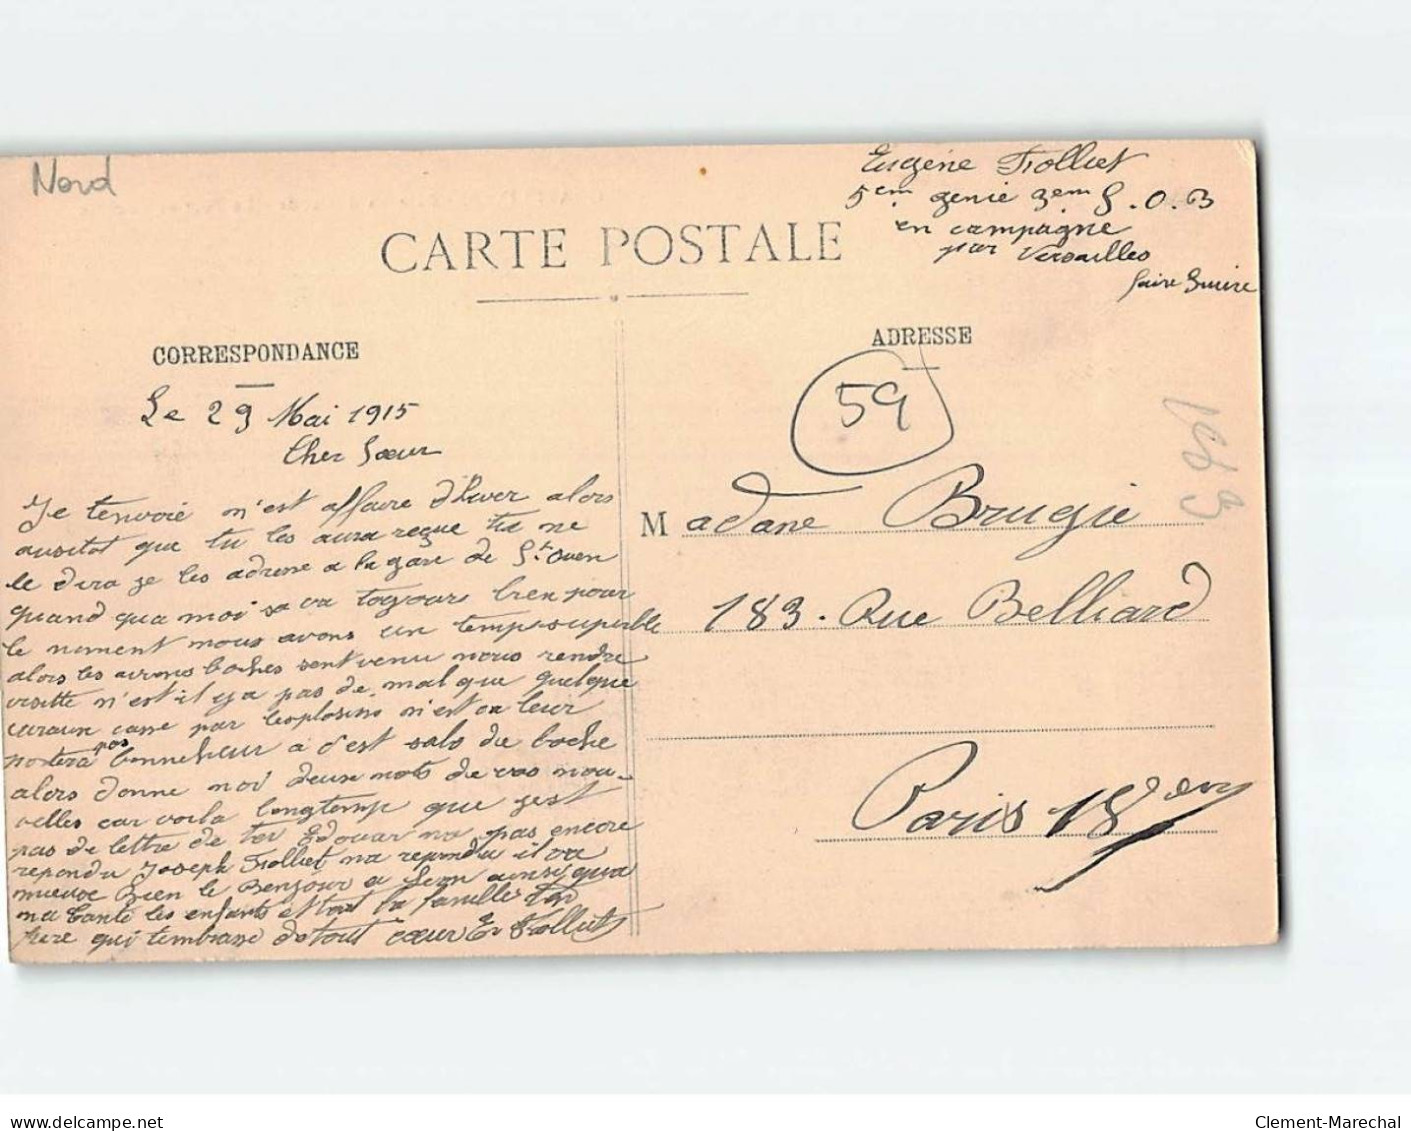 Nord
Eugène Folliet
5em genie 3em S.O.B
en campagne
par Versailles
faire suivre
CARTE POSTALE
CORRESPONDANCE
ADRESSE
59
Le 29 Mai 1915
Cher Sœur
Je tenvoie m'est affaire d'hiver alors
ausitot que tu les aura reçue tu me
le dira je les adresse a la gare de St. Ouen
quand qua moi sa va toujours bien pour
le moment nous avons un temp superble
alors les avions boches sont venu nous rendre
visitte m'est il y a pas de mal que quelque
caraux casse par lesplosion m'est sa leur
portera pas bonneheur a c'est salo de boche
alors donne moi deux mots de vos nou-
velles car voila longtemp que jest
pas de lettre de toi Edouar ma pas encore
repondu Joseph Folliet ma repondu il va
mieux Bien le Bonjour a Leon ainsi qua
ma tante les enfants et tout la famille ton
frere qui tembrasse de tout cœur E. Folliet
Madame Brugie
183. Rue Belliard
Paris 18em
Clement-Marechal
www.delcampe.net